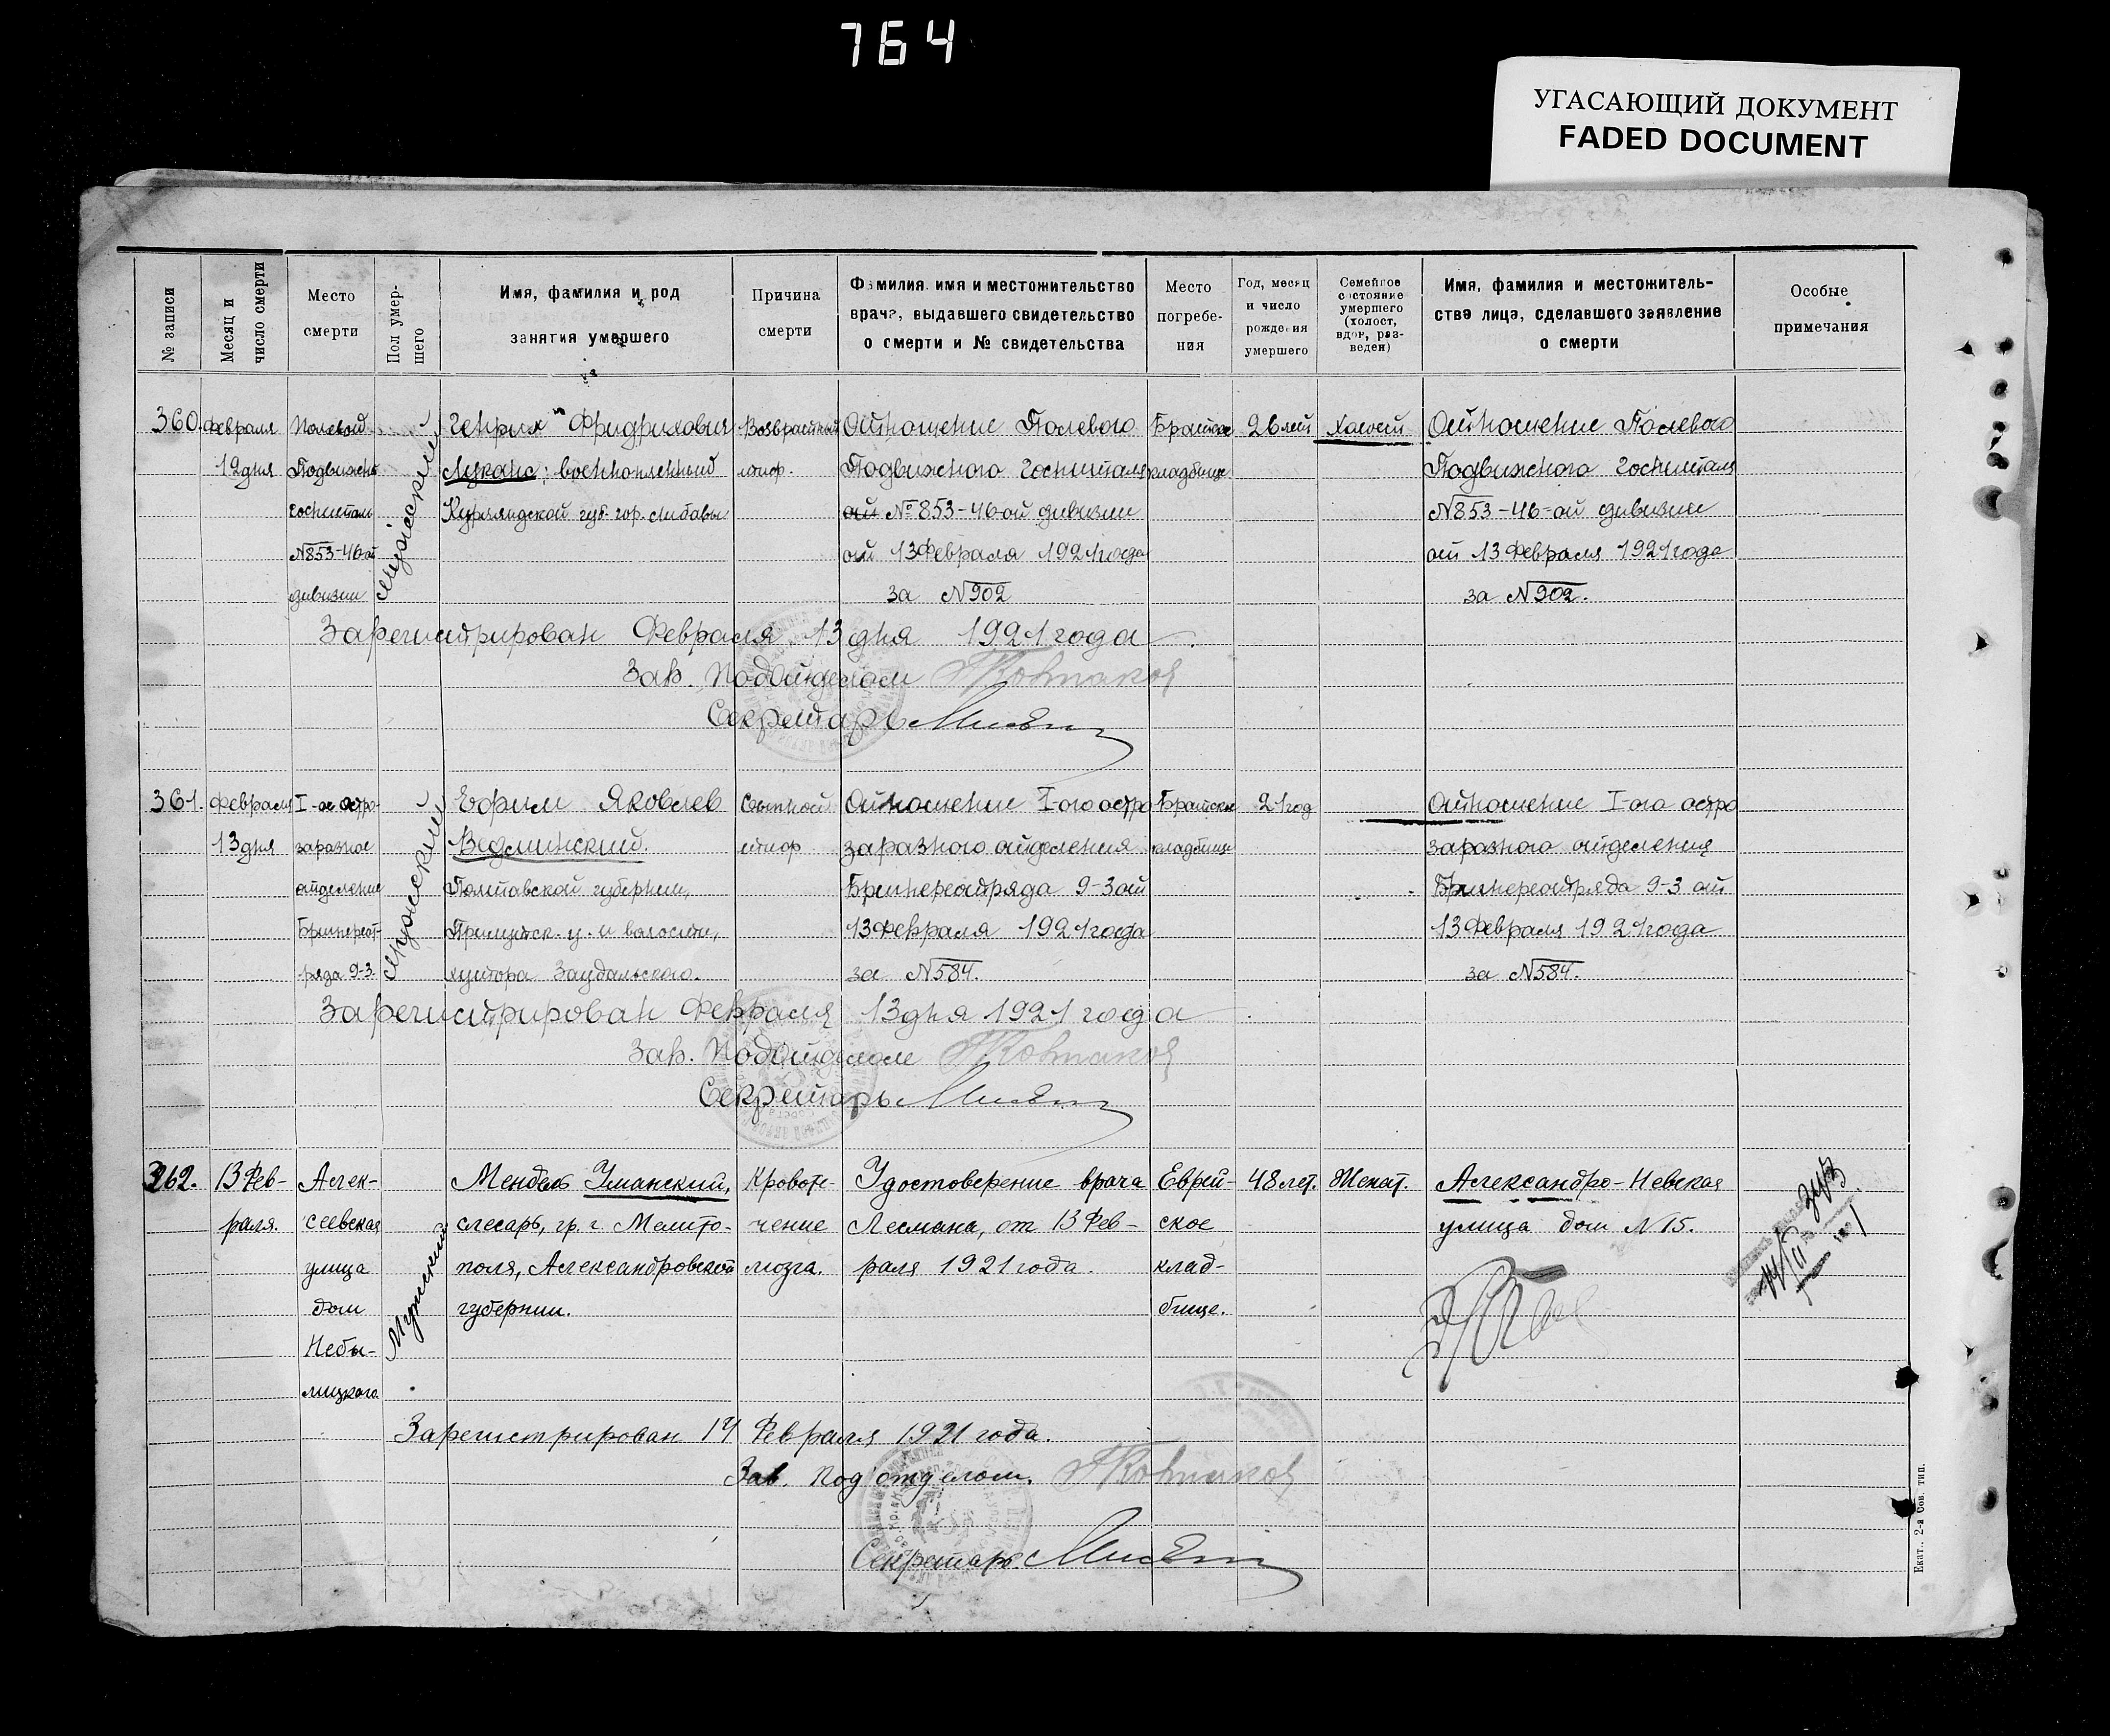 764
УГАСАЮЩИЙ ДОКУМЕНТ
FADED DOCUMENT
№ записи
Месяц и число смерти
Место смерти
Пол умер-шего
Имя, фамилия и род занятия умершего
Причина смерти
Фамилия, имя и местожительство врача, выдавшего свидетельство о смерти и № свидетельства
Место погребе-ния
Год, месяц и число рождения умершего
Семейное состояние умершего (холост, вдов, раз-веден)
Имя, фамилия и местожитель-ства лица, сделавшего заявление о смерти
Особые примечания
360.
Февраля
12 дня
Полевой
Подвижн.
госпиталь
N853-46-ой
дивизии
Мужской
Генрих Фридрихович
Луканс; военнопленный
Курляндской губ. гор. Либавы
Возвратный
тиф.
Отношение Полевого
Подвижного Госпиталя
№ 853-46-ой дивизии
от 13 Февраля 1921 года
за N902
Братское
кладбище
26 лет
Холост
Отношение Полевого
Подвижного Госпиталя
N853-46-ой дивизии
от 13 Февраля 1921 года
за N902.
Зарегистрирован Февраля 13 дня 1921 года.
Зав. Подотделом
Секретарь
361.
Февраля
13 дня
I-ое остро-
заразное
отделение
ряда 9-3.
Мужской
Ефим Яковлев
Ведминский.
Полтавской губернии,
у. и волости,
хутора
Сыпной
тиф
Отношение I-ого остро
заразного отделения
9-3 от
13 Февраля 1921 года
за N584.
Братское
кладбище
21 год
Отношение I-ого остро
заразного отделения
9-3 от
13 Февраля 1921 года
за N584.
Зарегистрирован Февраля 13 дня 1921 года.
Зав. Подотделом
Секретарь
362.
13 Фев-
раля.
Алек-
сеевская
улица
дом
Небы-
лицкого.
Мужской
Мендель Уманский,
слесарь, гр. г. Мелито-
поля, Александровской
губернии.
Кровоте-
чение
мозга.
Удостоверение врача
Лесмана, от 13 Фев-
раля 1921 года.
Еврей-
ское
клад-
бище.
48 лет.
Женат.
Александро-Невская
улица дом N15.
Зарегистрирован 14 Февраля 1921 года.
Зав. Подотделом.
Секретарь
Екат., 2-я Сов. тип.